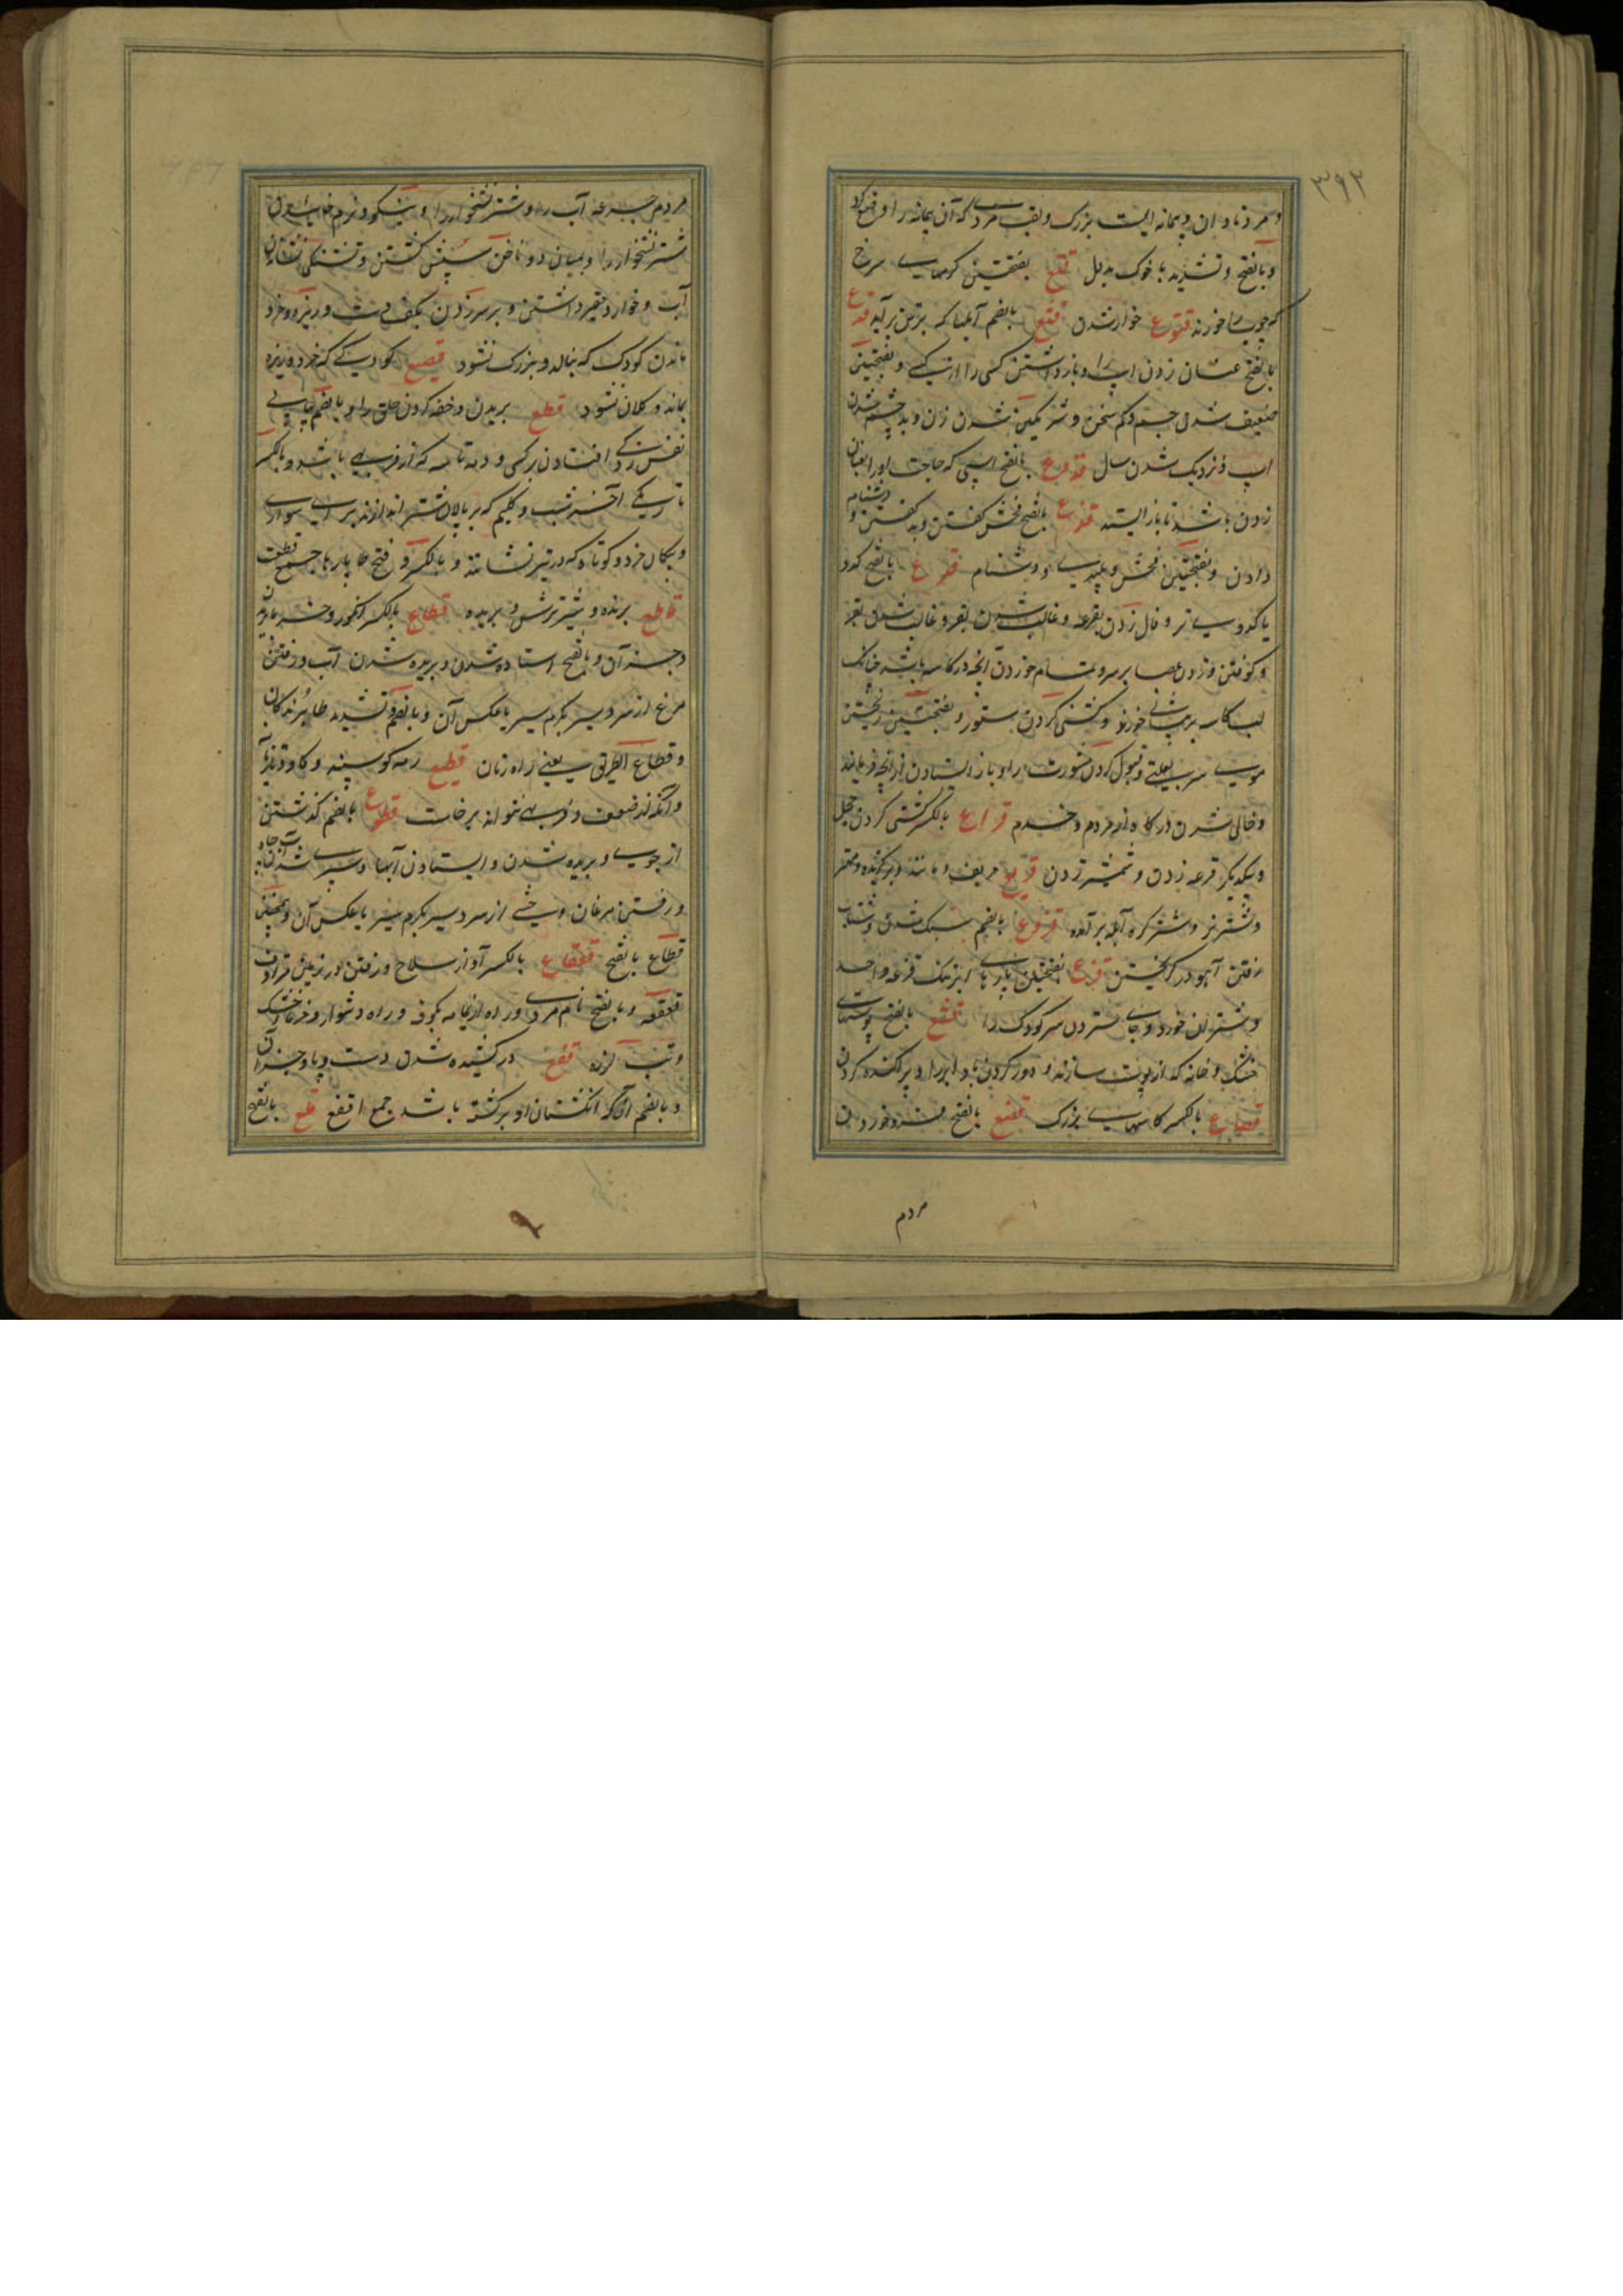 ۳۹۲
و مرد نادان و پیمانه ایست بزرگ و لقب مردی که آن پیمانه را وضع کرد
و بالفتح و تشدید با خوک قتع بفتحتین کرمهای سرخ
که چوب را خورند قتوع خوار شدن قتع بالضم قدع
بالفتح عنان زدن اسپ را و باز داشتن کسی را از و بفتحتین
ضعیف شدن چشم و کم سخن و شرمگین شدن زن و بد
اسپ و نزدیک شدن سال قدوع بالفتح اسپی که حاجت او را بعنان
زدن باشد تا باز ایستد قذع بالفتح فحش گفتن و بد گفتن و دشنام
دادن و بفتحتین فحش و پلیدی و دشنام قرع بالفتح کدو
یا کدوی تر و فال زدن بقرعه و غالب شدن بقرعه و غالب شدن
و کوفتن و زدن عصا بر سر و تمام خوردن آنچه در کاسه باشد چنانکه
لب کاسه به پیشانی خورد و گشنی کردن ستور و بفتحتین ریختن
موی سر بعلتی و قبول کردن مشورت را و باز ایستادن از آنچه فرمایند
و خالی شدن درگاه از مردم و خدم قراع بالکسر گشنی کردن
و یکدیگر قرعه زدن و شمشیر زدن قریع حریف و مانند و برگزیده و مهتر
و شتر نر و شتر کره آبله برآمده قزوع بالضم سبک شدن و شتاب
رفتن آهو در گریختن قزع بفتحتین پارهای ابر تنک قزعه واحد
و شتران خورد و جای ستردن سر کودک را قشع بالفتح پوستهای
خشک و خانه که از پوست سازند و دور کردن باد ابر را و پراکنده کردن
قصاع بالکسر کاسهای بزرگ قصع بالفتح فرو خوردن
مردم
مردم جرعه آب را و شتر نشخوار را و نیکو و نرم خائیدن
شتر نشخوار را و بمیان دو ناخن سپش کشتن و تشنگی نشاندن
آب و خوار و حقیر داشتن و بر سر زدن بکف دست و ریزه و خرد
ماندن کودک که نبالد و بزرگ نشود قصیع کودکی که خرد و ریزه
بماند و کلان نشود قطع بریدن و خفه کردن حلق را و بالضم
نفس زدگی افتادن بر کسی و دمه تاسه که از فربهی باشد و بالکسر
تاریکی آخر شب و گلیم که بر پالان شتر اندازند برای سواری
و پیکان خرد و کوتاه که در تیر نشانند و بالکسر و فتح طا پارها جمع قطعه
قاطع برنده و شیر ترش و بریده قطاع بالکسر انگور و خرما بریدن
و جز آن و بالفتح استاده شدن و بریده شدن آب و رفتن
مرغ از سردسیر بگرم سیر یا عکس آن و بالضم و تشدید طا برندگان
و قطاع الطریق یعنی راه زنان قطیع رمه گوسپند و گاو و تازیانه
و آنکه از ضعف و فربهی نتواند برخاست قطوع بالضم گذشتن
از جوی و بریده شدن و ایستادن آبها و سپری شدن آب چاه
و رفتن مرغان وحشی از سردسیر بگرم سیر یا عکس آن و همچنین
قطاع بالفتح قعقاع بالکسر آواز سلاح و رفتن در زمین مرادف
قعقعه و بالفتح نام مردی و راه از یمامه بکوفه و راه دشوار و خرمای خشک
و تب لرزه قفع درکشیده شدن دست و پا و جز آن
و بالضم آنکه انگشتان او برگشته باشد جمع اقفع قلع بالفتح